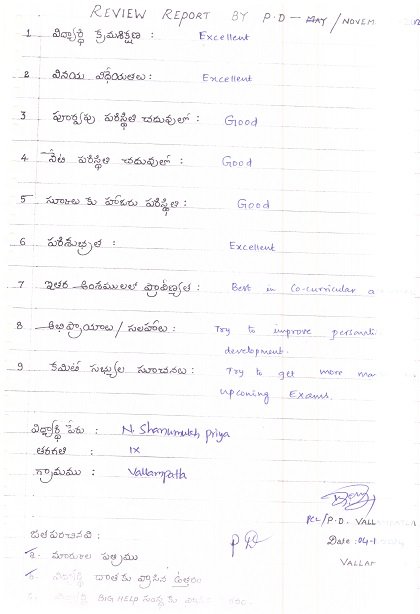 REVIEW REPORT BY P.D - MAY / NOVEM
1 విద్యార్థి క్రమశిక్షణ : Excellent
2 వినయ విధేయతలు : Excellent
3 పూర్వపు పరిస్థితి చదువులో : Good
4 నేటి పరిస్థితి చదువులో : Good
5 స్కూలు కు హాజరు పరిస్థితి : Good
6 పరిశుభ్రత : Excellent
7 ఇతర అంశములలో ప్రావీణ్యత : Best in Co-curricular a
8 అభిప్రాయాలు / సలహాలు : Try to improve personali
development.
9 కేమిటి సభ్యుల సూచనలు : Try to get more ma
upcoming Exams.
విద్యార్థి పేరు : N. Shanumukh Priya
తరగతి : IX
గ్రామము : Vallampatla
PCL/P.D. VALL
జతపరచినవి : P D Date: 04-1
a. మార్కుల పత్రము VALLAM
b. విద్యార్థి దాతకు వ్రాసిన ఉత్తరం